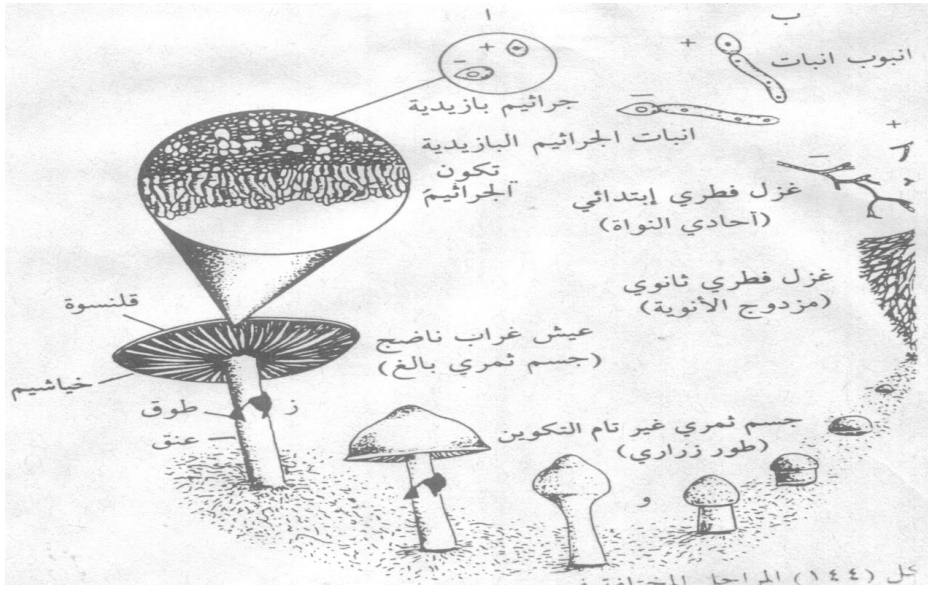 ا
ب
+
−
+
انبوب انبات
−
جراثيم بازيدية
انبات الجراثيم البازيدية
تكون
الجراثيم
+
−
غزل فطري إبتدائي
(أحادي النواة)
غزل فطري ثانوي
(مزدوج الأنوية)
قلنسوة
عيش غراب ناضج
(جسم ثمري بالغ)
خياشيم
طوق
ز
عنق
جسم ثمري غير تام التكوين
(طور زراري)
و
كل (١٤٤) المراحل المختلفة